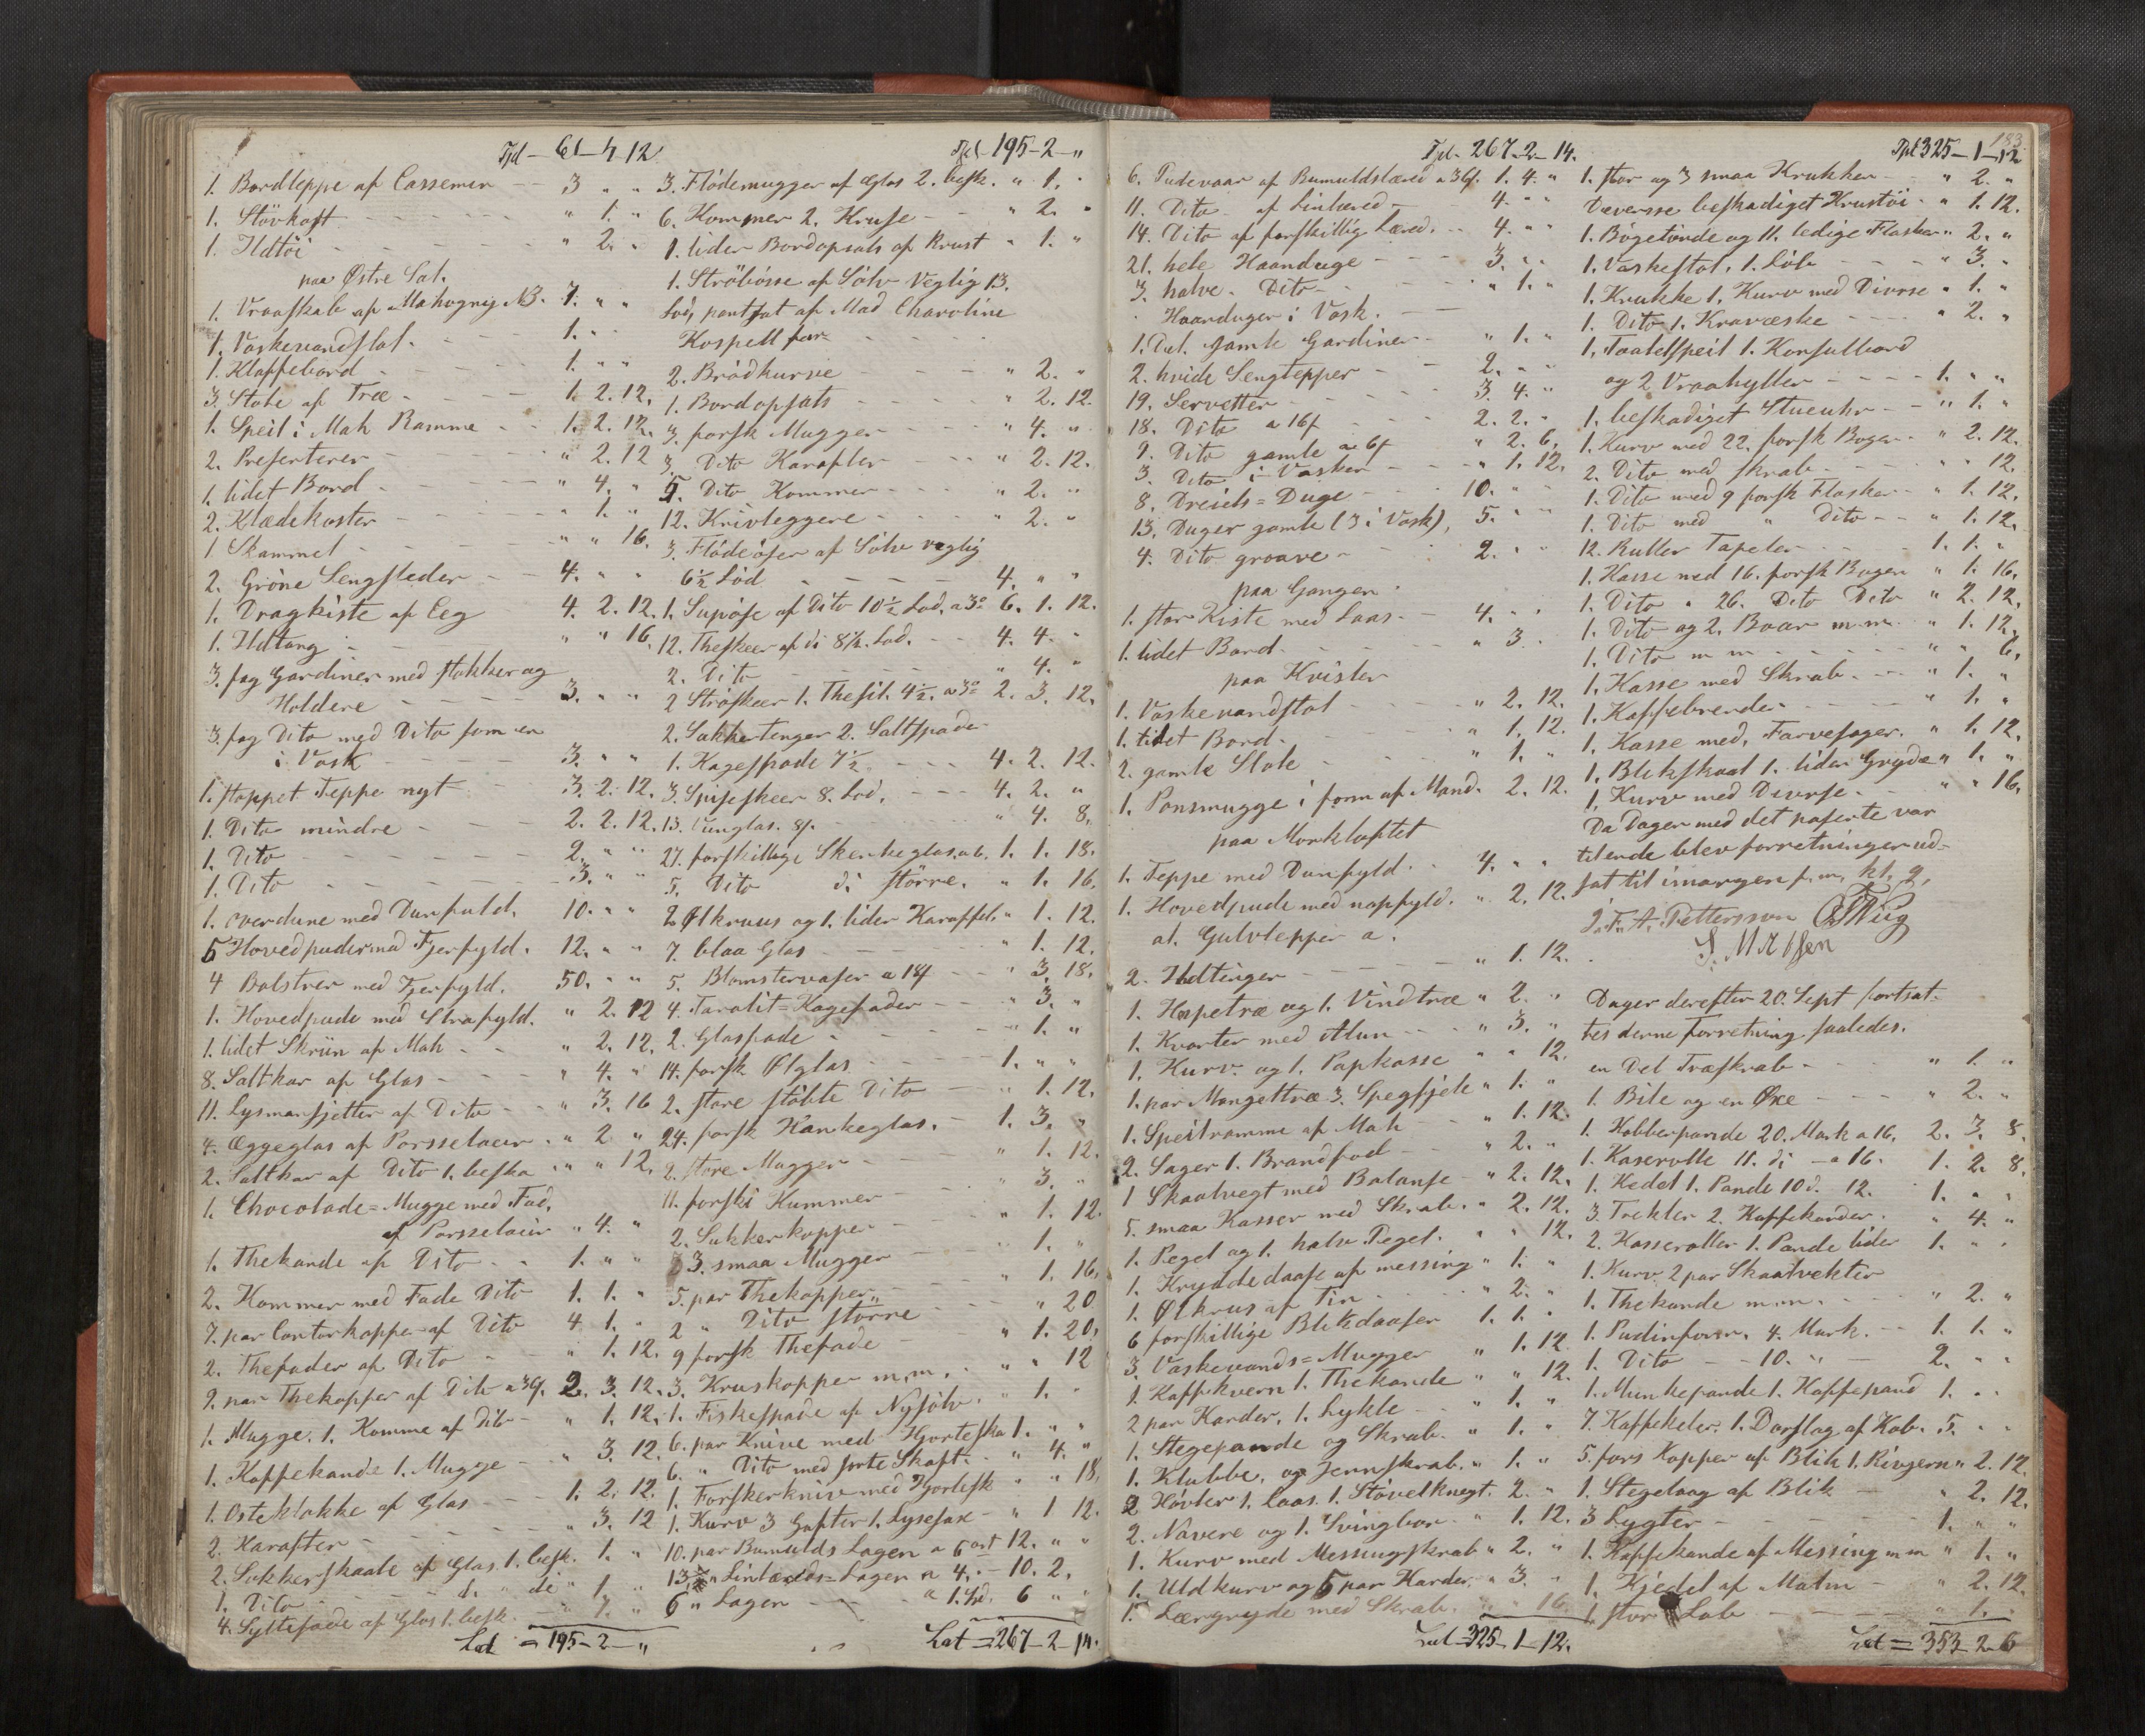 61 – 4 12
1. Bordteppe af Cassemer – – 3 " "
1. Støvkost – – – – " 1. "
1. Ildtöi – – – – " 2. "
paa Østre Sal.
1. Vraaskab af Mahogny N3. 7. " "
1. Vaskevandstol. – – 1. "
1. Klaffebord – – – 1. " "
3. Stole af Træ – – – 1. 2. 12.
1. Speil i Mah Ramme – – 1. 2. 12.
2. Presenterer – – – " 2. 12
1. lidet Bord – – – " 4. "
2. Klædekoster – – – " 1. "
1 Skammel – – – " " 16.
2. Gröne Sengsteder – – 4. " "
1. Dragkiste af Eeg 4. 2. 12.
1. Ildtang – – – " " 16.
3. fag Gardiner med stokker og
Holdere – – – 3. " "
3. fag Dito med Dito som er
i Vask – – – 3. " "
1. stoppet Teppe nyt – 3. 2. 12.
1. Dito mindre – – – 2. 2. 12.
1. Dito – – – – 2. " "
1. Dito – – – – 3. " "
1. overdune med Dunfuld. 10. " "
5 Hovedpuder med Fjerfyld. 12. " "
4 Bolstrer med Fjerfyld. 50. " "
1. Hovedpude med Strafyld. " 2. 12
1. lidet Skriin af Mah – – " 2. 12.
8. Saltkar af Glas – – – " 4. "
11. Lysmansjetter af Dito – – " 3. 16
4. Æggeglas af Porsselaein. " 2 "
2. Saltkar af Dito 1. beska " " 12.
1. Chocolade=Mugge med Fad.
af Porsselain " 4. "
1. Thekande af Dito – – 1. " "
2. Kommer med Fade Dito 1. 1. "
7. par Contorkopper af Dito 4. 1. "
2. Thefader af Dito – – " 1. 12.
9. par Thekopper af Dito a 36. 2. 3. 12.
1. Mugge. 1. Komme af Dito – " 1. 12.
1. Kaffekande 1. Mugge – – " 3. 12.
1. Osteklokke af Glas – – 1. 2. 12.
2. Karafter – – – – " 3. 12
2. Sukkerskaale af Glas. 1. besk. 1. "
1. Dito – – – d. " di " 1. "
4. Syltefade af Glas 1. besk. – "
Lat = 195 – 2 – "
195 – 2 – "
3. Flödemugger af Glas 2. besk. " 1. "
6. Kommer 2. Kruse – – " 2. "
1. liden Bordopsats af Krust " 1. "
1. Ströbösse af Sölv Vegtig 13.
Lod, pantsat af Mad Charoline
Kospell for – – –
2. Brödkurve – – – " 2. "
1. Bordopsats – – – " 2. 12.
3. forsk Mugger – – – " 4. "
3. Dito Karafler – – " 2. 12.
5. Dito Kommer – – – " 2. "
12. Knivleggere – – – " 2. "
3. Flödeöser af Sölv vegtig
6½ Lod – – – – 4. " "
1. Supöse af Dito 10½ Lod. a 3° 6. 1. 12.
12. Theskeer af di 8½. Lod. – – 4. 4. "
2. Dito – – – – " 4. "
2 Ströskeer 1. Thesil. 4½. a 3° 2. 3. 12.
2. Sukkertenger 2. Saltspade
1. Kagespade 7½ – – – 4. 2. 12.
3. Spiseskeer 8. Lod. – – – 4. 2. "
13. Vinglas. 8f. – – – " 4. 8.
27. forskillige Skenkeglas. a 6. 1. 1. 18.
5. Dito di större. " 1. 16.
2 Ölkruus og 1. liden Karaffel. " 1. 12.
7. blaa Glas – – – " 1. 12.
5. Blomstervaser a 18f – – " 3. 18.
4. Taralit=Kagefader – – " 3. "
2. Glasfade – – – – " 1. "
14. forsk Ølglas – – – 1. " "
2. store slöbte Dito – – " 1. 12.
24. forsk Hankeglas. – 1. 3. "
2. store Mugger – – – " 1. 12.
11. forski Kummer – – – " 3. "
2. Sukkerkopper – – – " 1. 12.
3. smaa Mugger – – – " 1. "
5. par Thekopper – – – " 1. 16.
2 " Dito större – – – " " 20
9 forsk Thefade – – – " 1. 20.
3. Kruskopper m.m. – – " " 12
1. Fiskespade af Nysölv. – " 1. "
6. par Knive med Hjorteska 1. " "
6. " Dito med sorte Skaft. – " 4. "
1. Forskerkniv med Hjortesk " " 18.
1. Kurv 3 Gafler 1. Lysesax – " 1 12.
10. par Bumulds Lagen a 6 ort 12. " "
13. " Linlærreds=Lagen a 4. – 10. 2.
6 " Lagen – – a 1. Spd. 6 " "
Lat = 267 – 2 – 14.
267 – 2 – 14.
6. Pudevaar af Bumuldslærred a 36. 1. 4. "
11. Dito af Linlærred – 4. " "
14. Dito af forskillig Lærred. – 4. " "
21. hele Haanduge – – – 3. " "
3. halve Dito – – – " 1. "
Haanduger i Vask. – –
1. Del. gamle Gardiner – " 1. "
2. hvide Sengtepper – – 2. " "
19. Servetter – – – 3. 4. "
18. Dito a 16f – – 2. 2. "
9. Dito gamle a 6f " 2. 6.
3. Dito i Vasken – – " 1. 12.
8. Dreiels=Duge – – – 10. " "
13. Duger gamle (3 i Vask), 5. " "
4. Dito groave – – – 2. " "
paa Gangen
1. stor Kiste med Laas – 4. " "
1. lidet Bord – – – – " 3 "
paa Kvisten
1. Vaskevandstol – – – " 2. 12.
1. lidet Bord. – – – – " 1. 12.
2. gamle Stole – – – – " 1. "
1. Ponsmugge i form af Mand. 2. 12.
paa Morkloftet
1. Teppe med Dunfyld. – 4. " "
1. Hovedpude med nopfyld. " 2. 12.
al. Gulvtepper a.
2. Ildtinger – – – – " 1. 12.
1. Hespetræ og 1. Vindtræ " 2. "
1. Kvarter med Alun – – " 3. "
1. Kurv. og 1. Papkasse " " 12.
1. par Mangeltræ 3. Spegfjele " 1. "
1. Speilramme af Mah – " 1. 12.
2. Sager 1. Brandfod – – " 2. "
1 Skaalvegt med Balanse – " 2. 12.
5. smaa Kasser med Skrab. " 2. 12.
1. Pegel og 1. halv Pegel. " " 12.
1. Kryddedaase af messing " 1. "
1. Ölkrus af Tin – – – " 2. "
6 forskillige Blikdaaser 1. 1. "
3. Vaskevands=Mugger " 1. 12
1. Kaffekvern 1. Thekande " " 12.
2 par Karder. 1. Lykte – – " 1. "
1. Stegepande og Skrab. " 1. "
1. Klubbe. og Jernskrab. " 1. "
2 Hövler 1. Laas. 1. Stövelknegt. 2. "
2. Navere og 1. Svingbor – " 1. 12.
1. Kurv med Messingskrab " 2. "
1. Uldkurv og 5 par Karder. " 3. "
1. Leergryde med Skrab. " " 16.
Lat = 325 – 1 – 12.
183.
325 – 1 – 12
1. stor og 3 smaa Krukker – " 2. "
Deversse beskadiget Krustöi. " 1. 12.
1. Bögetönde og 11. ledige Flasker " 2. "
1. Vaskestol. 1. Löb – – – " 3. "
1. Krukke 1. Kurv med Diverse " 1. "
1. Dito 1. Kravæske – – – " 2. "
1. Toaletspeil 1. Konsulbord
og 2 Vraahyller – – – 1. " "
1. beskadiget Stueuhr – – " 1. "
1. Kurv med 22. forsk Boger. " 2. 12.
2. Dito med skrab – – – " " 12.
1. Dito med 9 forsk Flasker – " 1. 12.
1. Dito med " Dito – – " 1. 12.
12. Ruller Tapeter – – – 1. 1. "
1. Kasse med 16. forsk Boger " 1. 16.
1. Dito " 26. Dito Dito " 2. 12.
1. Dito og 2. Boar m.m. " 1. 12.
1. Dito m m – – – " " 6.
1. Kasse med Skrab – – – " 1. "
1. Kaffebrender – – – – " 1. "
1. Kasse med. Farvesager. " 1. 12.
1. Blikskaal 1. liden Gryde " 1. "
1. Kurv med Deverse – – " " 16.
Da Dagen med det paserte var
tilende blev forretningen ud=
sat til imorgen f.m. kl. 9.
J. F. A. Pettersson
Dagen derefter 20. Sept fortsat=
tes denne Forretning saaledes.
en Del Træskrab – – – " 1. "
1. Bile og en Øxe – – – " 2. "
1. Kobberpande 20. Mark a 16. 2. 3. 8.
1. Kaserolle 11. di – a 16. 1. 2. 8.
1. Kedel 1. Pande 10 d. 12. 1. " "
3. Trekter 2. Kaffekander. " 4. "
2. Kasseroller 1. Pande liden 1. " "
1. Kurv 2 par Skaalvekter
1. Thekande m.m. – – – " 2. "
1. Pudinform. 4. Mark. – 1. 1. "
1. Dito – – 10. " – 2. " "
1. Munkepande 1. Kaffepand 1. " "
7. Kaffekeler. 1. Dorslag af Kob. 5. " "
5. fors Kopper af Blik 1. Rivjern " 2. 12.
1. Stegelaag af Blik – – " 2. 12.
3 Lygter – – – – 1. " "
1. Kaffekande af Messing m m " 1. "
1. Kjedel af Malm – – " 2. 12.
1 stor Löb – – – – " 1. "
Lat = 353 – 2 – 6